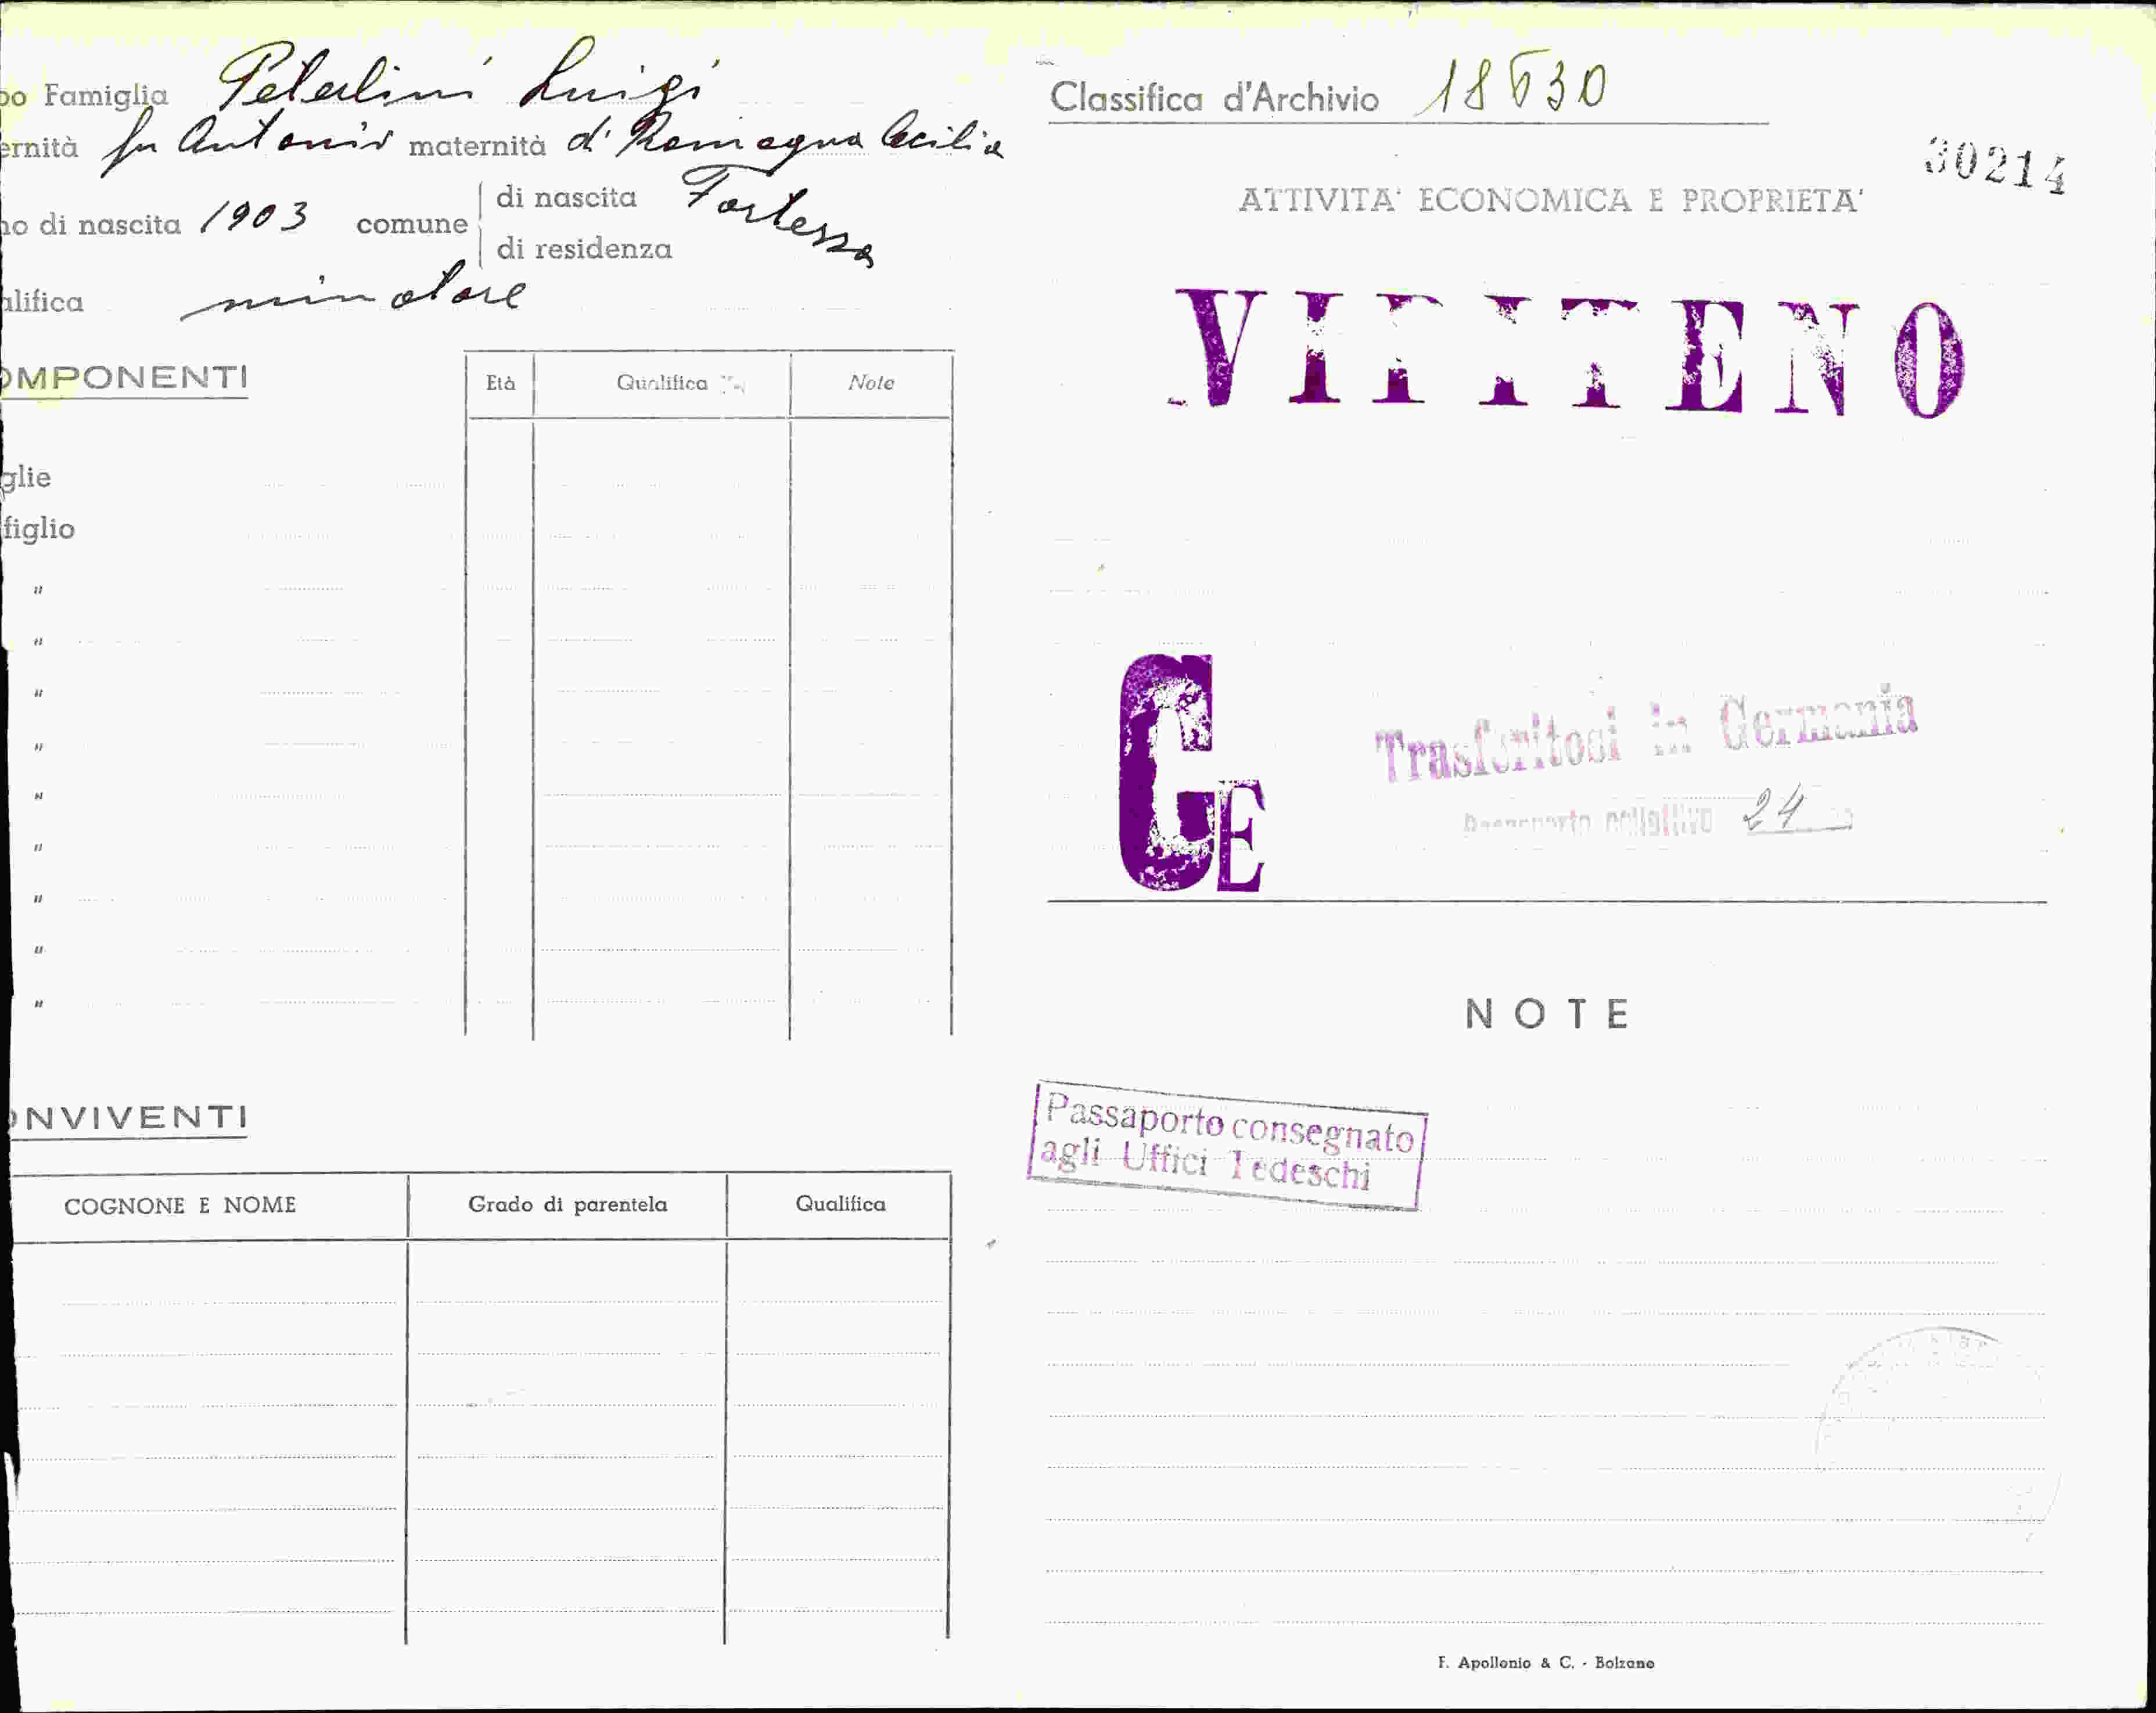 po Famiglia Peterlini Luigi
ernità fu Antonio maternità di Romagna Cecilia
no di nascita 1903 comune di nascita Fortezza
di residenza
alifica minatore
OMPONENTI
Età Qualifica Note
glie
figlio
"
"
"
"
"
"
"
"
"
ONVIVENTI
COGNONE E NOME Grado di parentela Qualifica
Classifica d'Archivio 18630
30214
ATTIVITA' ECONOMICA E PROPRIETA'
VIPITENO
CE
Trasferitosi in Germania
Passaporto collettivo 24
NOTE
Passaporto consegnato
agli Uffici Tedeschi
F. Apollonio & C. - Bolzano